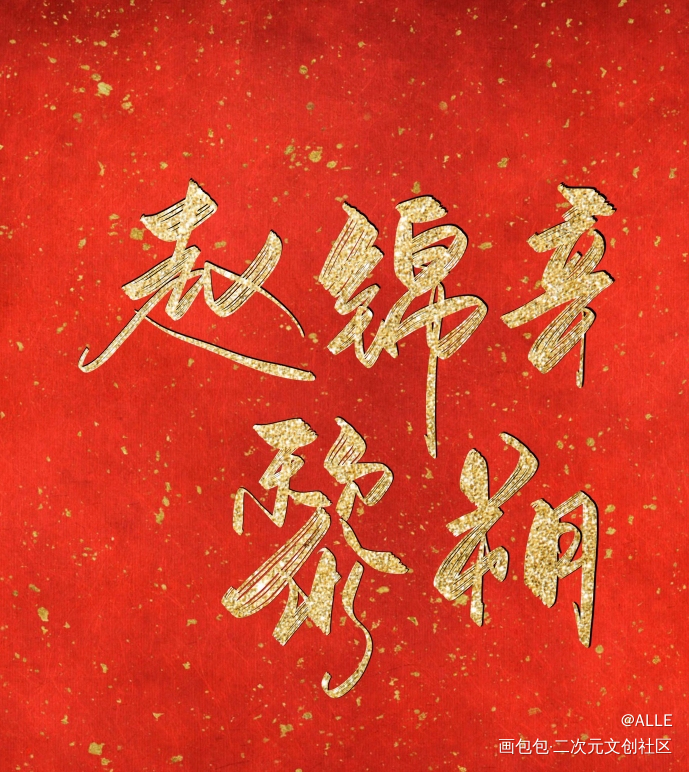 赵锦辛
黎朔
@ALLE
画包包·二次元文创社区